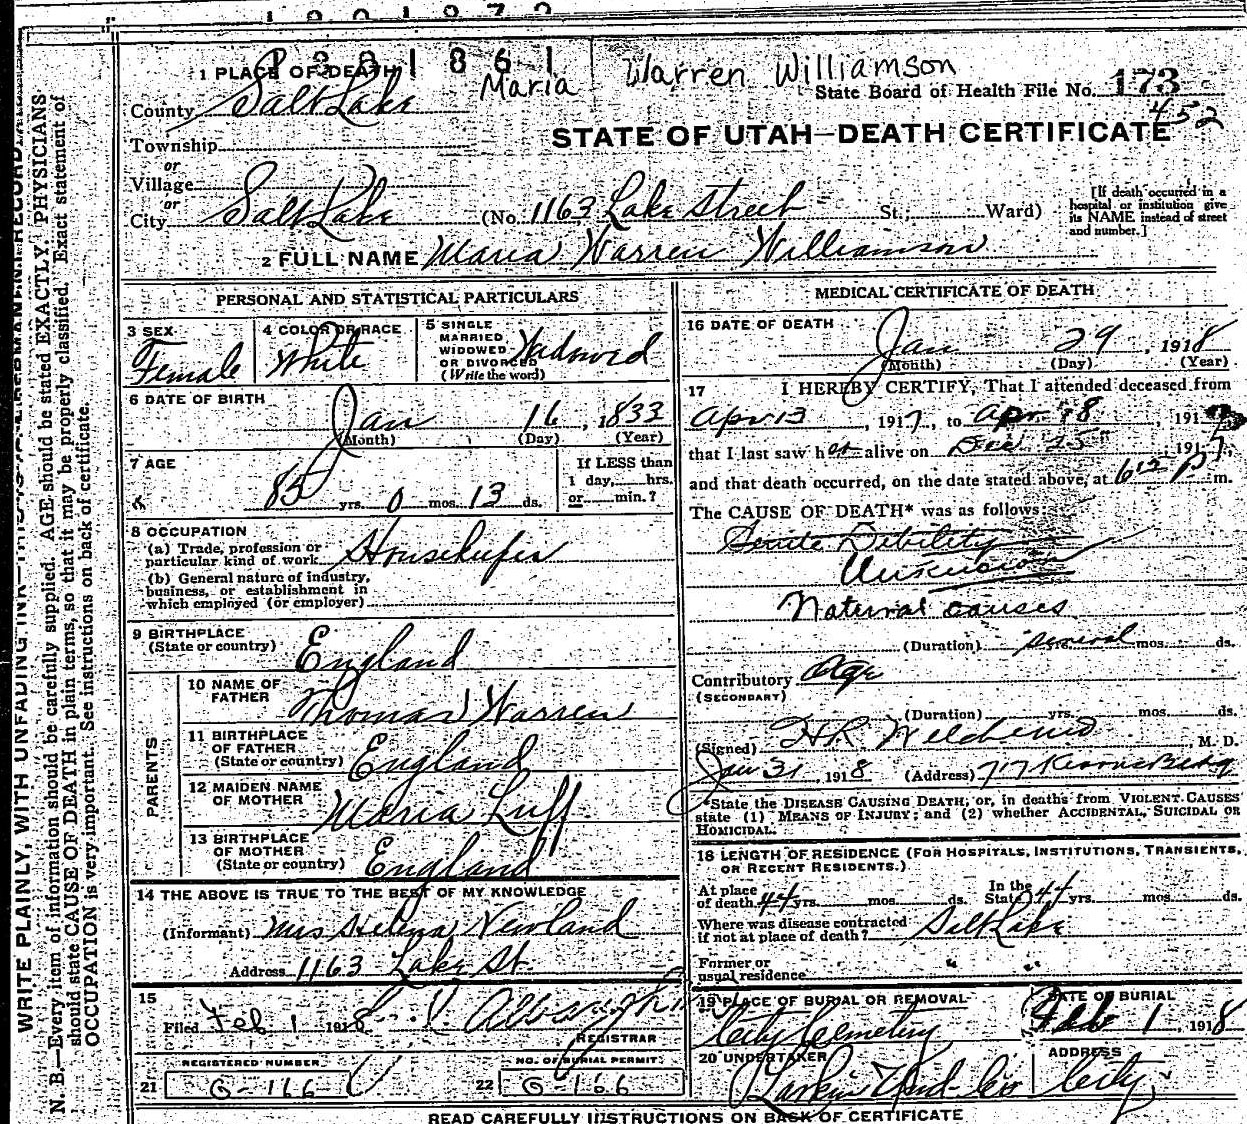 1 PLACE OF DEATH
1861
Maria Warren Williamson
County Salt Lake
State Board of Health File No. 173
452
Township
STATE OF UTAH—DEATH CERTIFICATE
or
Village
or
City Salt Lake (No. 1163 Lake Street St.; Ward)
[If death occurred in a hospital or institution give its NAME instead of street and number.]
2 FULL NAME Maria Warren Williamson
PERSONAL AND STATISTICAL PARTICULARS
3 SEX
Female
4 COLOR OR RACE
White
5 SINGLE
MARRIED
WIDOWED
OR DIVORCED
(Write the word)
Widowed
6 DATE OF BIRTH
Jan 16, 1833
(Month) (Day) (Year)
7 AGE
85 yrs. 0 mos. 13 ds.
If LESS than
1 day, hrs.
or min.?
8 OCCUPATION
(a) Trade, profession or
particular kind of work Housekeeper
(b) General nature of industry,
business, or establishment in
which employed (or employer)
9 BIRTHPLACE
(State or country) England
PARENTS
10 NAME OF
FATHER Thomas Warren
11 BIRTHPLACE
OF FATHER
(State or country) England
12 MAIDEN NAME
OF MOTHER Maria Luff
13 BIRTHPLACE
OF MOTHER
(State or country) England
14 THE ABOVE IS TRUE TO THE BEST OF MY KNOWLEDGE
(Informant) Mrs Helena Newland
Address 1163 Lake St.
15
Filed Feb 1 1918
REGISTRAR
REGISTERED NUMBER
21 G-166
NO. OF BURIAL PERMIT
22 G-166
MEDICAL CERTIFICATE OF DEATH
16 DATE OF DEATH
Jan 29, 1918
(Month) (Day) (Year)
17 I HEREBY CERTIFY, That I attended deceased from
Apr 13, 1917, to Apr 18, 191
that I last saw her alive on Dec 25, 1917,
and that death occurred, on the date stated above, at 6 P m.
The CAUSE OF DEATH* was as follows:
Senile Debility
Unknown
Natural causes
(Duration) several yrs. mos. ds.
Contributory Age
(SECONDARY)
(Duration) yrs. mos. ds.
(Signed) H.R. , M. D.
Jan 31, 1918 (Address) 717 Kearns Bldg
*State the DISEASE CAUSING DEATH; or, in deaths from VIOLENT CAUSES
state (1) MEANS OF INJURY; and (2) whether ACCIDENTAL, SUICIDAL OR
HOMICIDAL.
18 LENGTH OF RESIDENCE (FOR HOSPITALS, INSTITUTIONS, TRANSIENTS,
OR RECENT RESIDENTS.)
At place
of death 44 yrs. mos. ds.
In the
State 44 yrs. mos. ds.
Where was disease contracted
if not at place of death? Salt Lake
Former or
usual residence " "
19 PLACE OF BURIAL OR REMOVAL
City Cemetery
DATE OF BURIAL
Feb 1, 1918
20 UNDERTAKER
Larkin Und Co
ADDRESS
City
READ CAREFULLY INSTRUCTIONS ON BACK OF CERTIFICATE
WRITE PLAINLY, WITH UNFADING INK—THIS IS A PERMANENT RECORD
N. B.—Every item of information should be carefully supplied. AGE should be stated EXACTLY. PHYSICIANS
should state CAUSE OF DEATH in plain terms, so that it may be properly classified. Exact statement of
OCCUPATION is very important. See instructions on back of certificate.